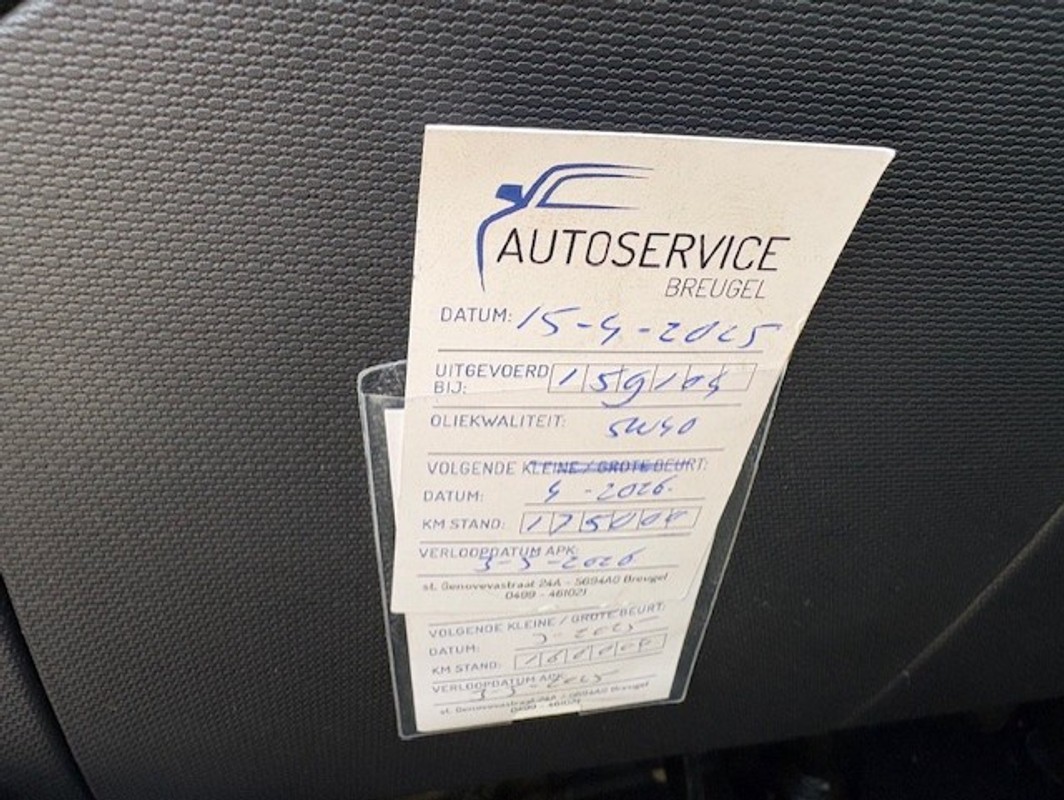 AUTOSERVICE
BREUGEL
DATUM: 15-4-2025
UITGEVOERD BIJ: 159104
OLIEKWALITEIT: 5W40
VOLGENDE KLEINE / GROTE BEURT:
DATUM: 4-2026
KM STAND: 175000
VERLOOPDATUM APK: 3-5-2026
st. Genovevastraat 24A - 5694AD Breugel
0499 - 461021
VOLGENDE KLEINE / GROTE BEURT:
DATUM: 3-2025
KM STAND: 160000
VERLOOPDATUM APK: 3-5-2025
st. Genovevastraat 24A - 5694AD Breugel
0499 - 461021